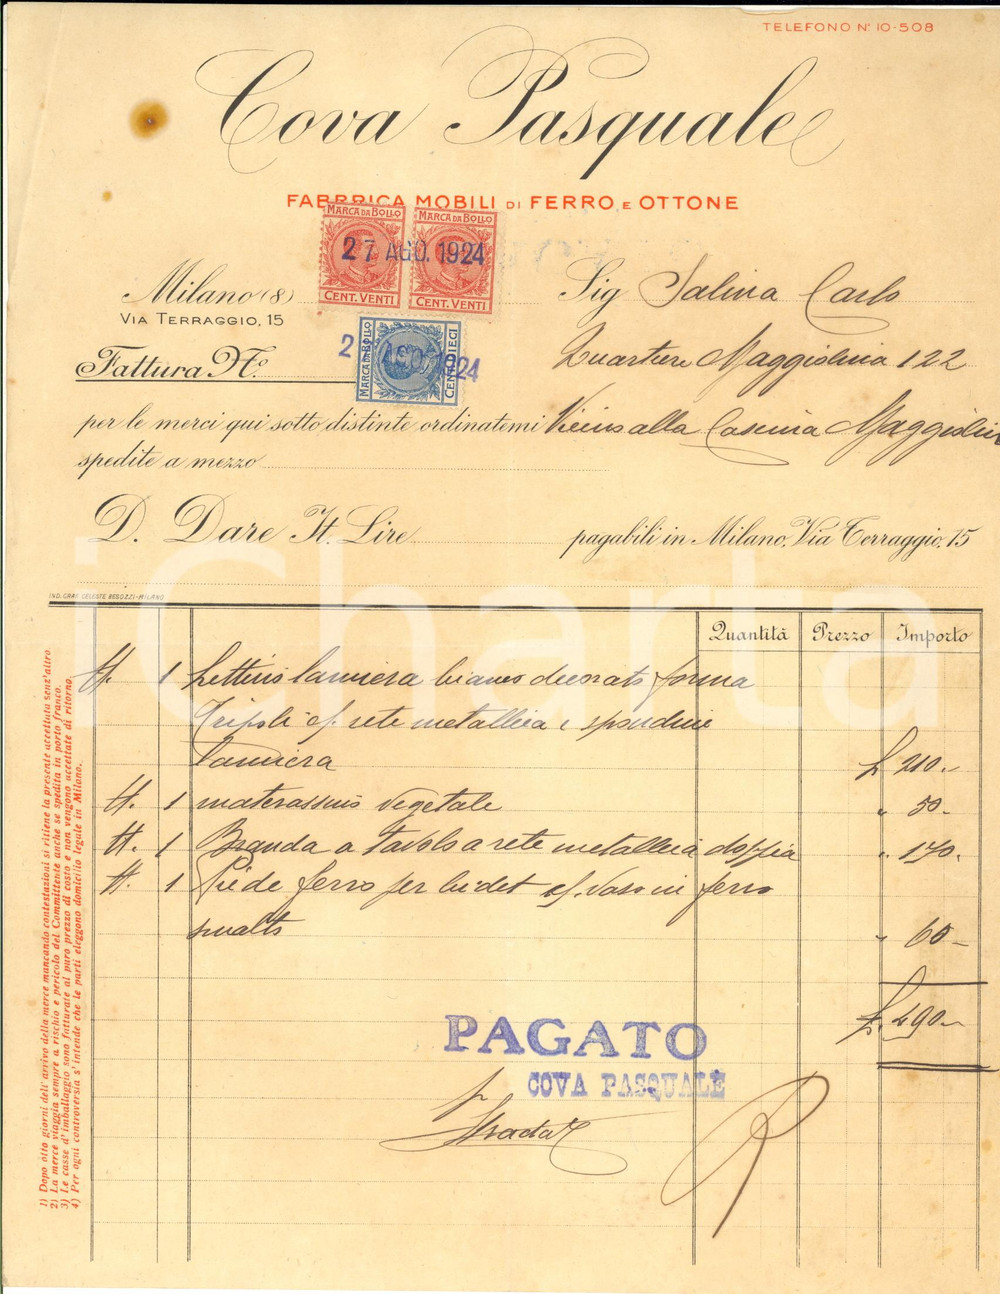 TELEFONO N° 10-508
Cova Pasquale
FABBRICA MOBILI DI FERRO E OTTONE
MARCA DA BOLLO MARCA DA BOLLO
27 AGO. 1924
CENT. VENTI CENT. VENTI
Milano (8)
VIA TERRAGGIO, 15
Sig Salina Carlo
MARCA DA BOLLO
2 AGO. 1924
CENT. DIECI
Fattura N°.
Quartiere Maggiolina 122
per le merci qui sotto distinte ordinatemi Vicino alla Cascina Maggiolina
spedite a mezzo
D. Dare It. Lire pagabili in Milano, Via Terraggio, 15
iCharta
IND. GRAF. CELESTE BESOZZI-MILANO
Quantità Prezzo Importo
N. 1 Lettino lamiera bianco decorato forma
Tripoli c/ rete metallica e spondine
lamiera £ 210.-
N. 1 materassino vegetale " 50.-
N. 1 Branda a tavolo a rete metallica doppia " 170.-
N. 1 Piede ferro per bidet c/ vaso in ferro
smalto " 60-
£. 490.-
PAGATO
COVA PASQUALE
p
1) Dopo otto giorni dell'arrivo della merce mancando contestazioni si ritiene la presente accettata senz'altro.
2) La merce viaggia sempre a rischio e pericolo del Committente anche se spedita in porto franco.
3) Le casse d'imballaggio sono fatturate al puro prezzo di costo e non vengono accettate di ritorno.
4) Per ogni controversia s'intende che le parti eleggono domicilio legale in Milano.